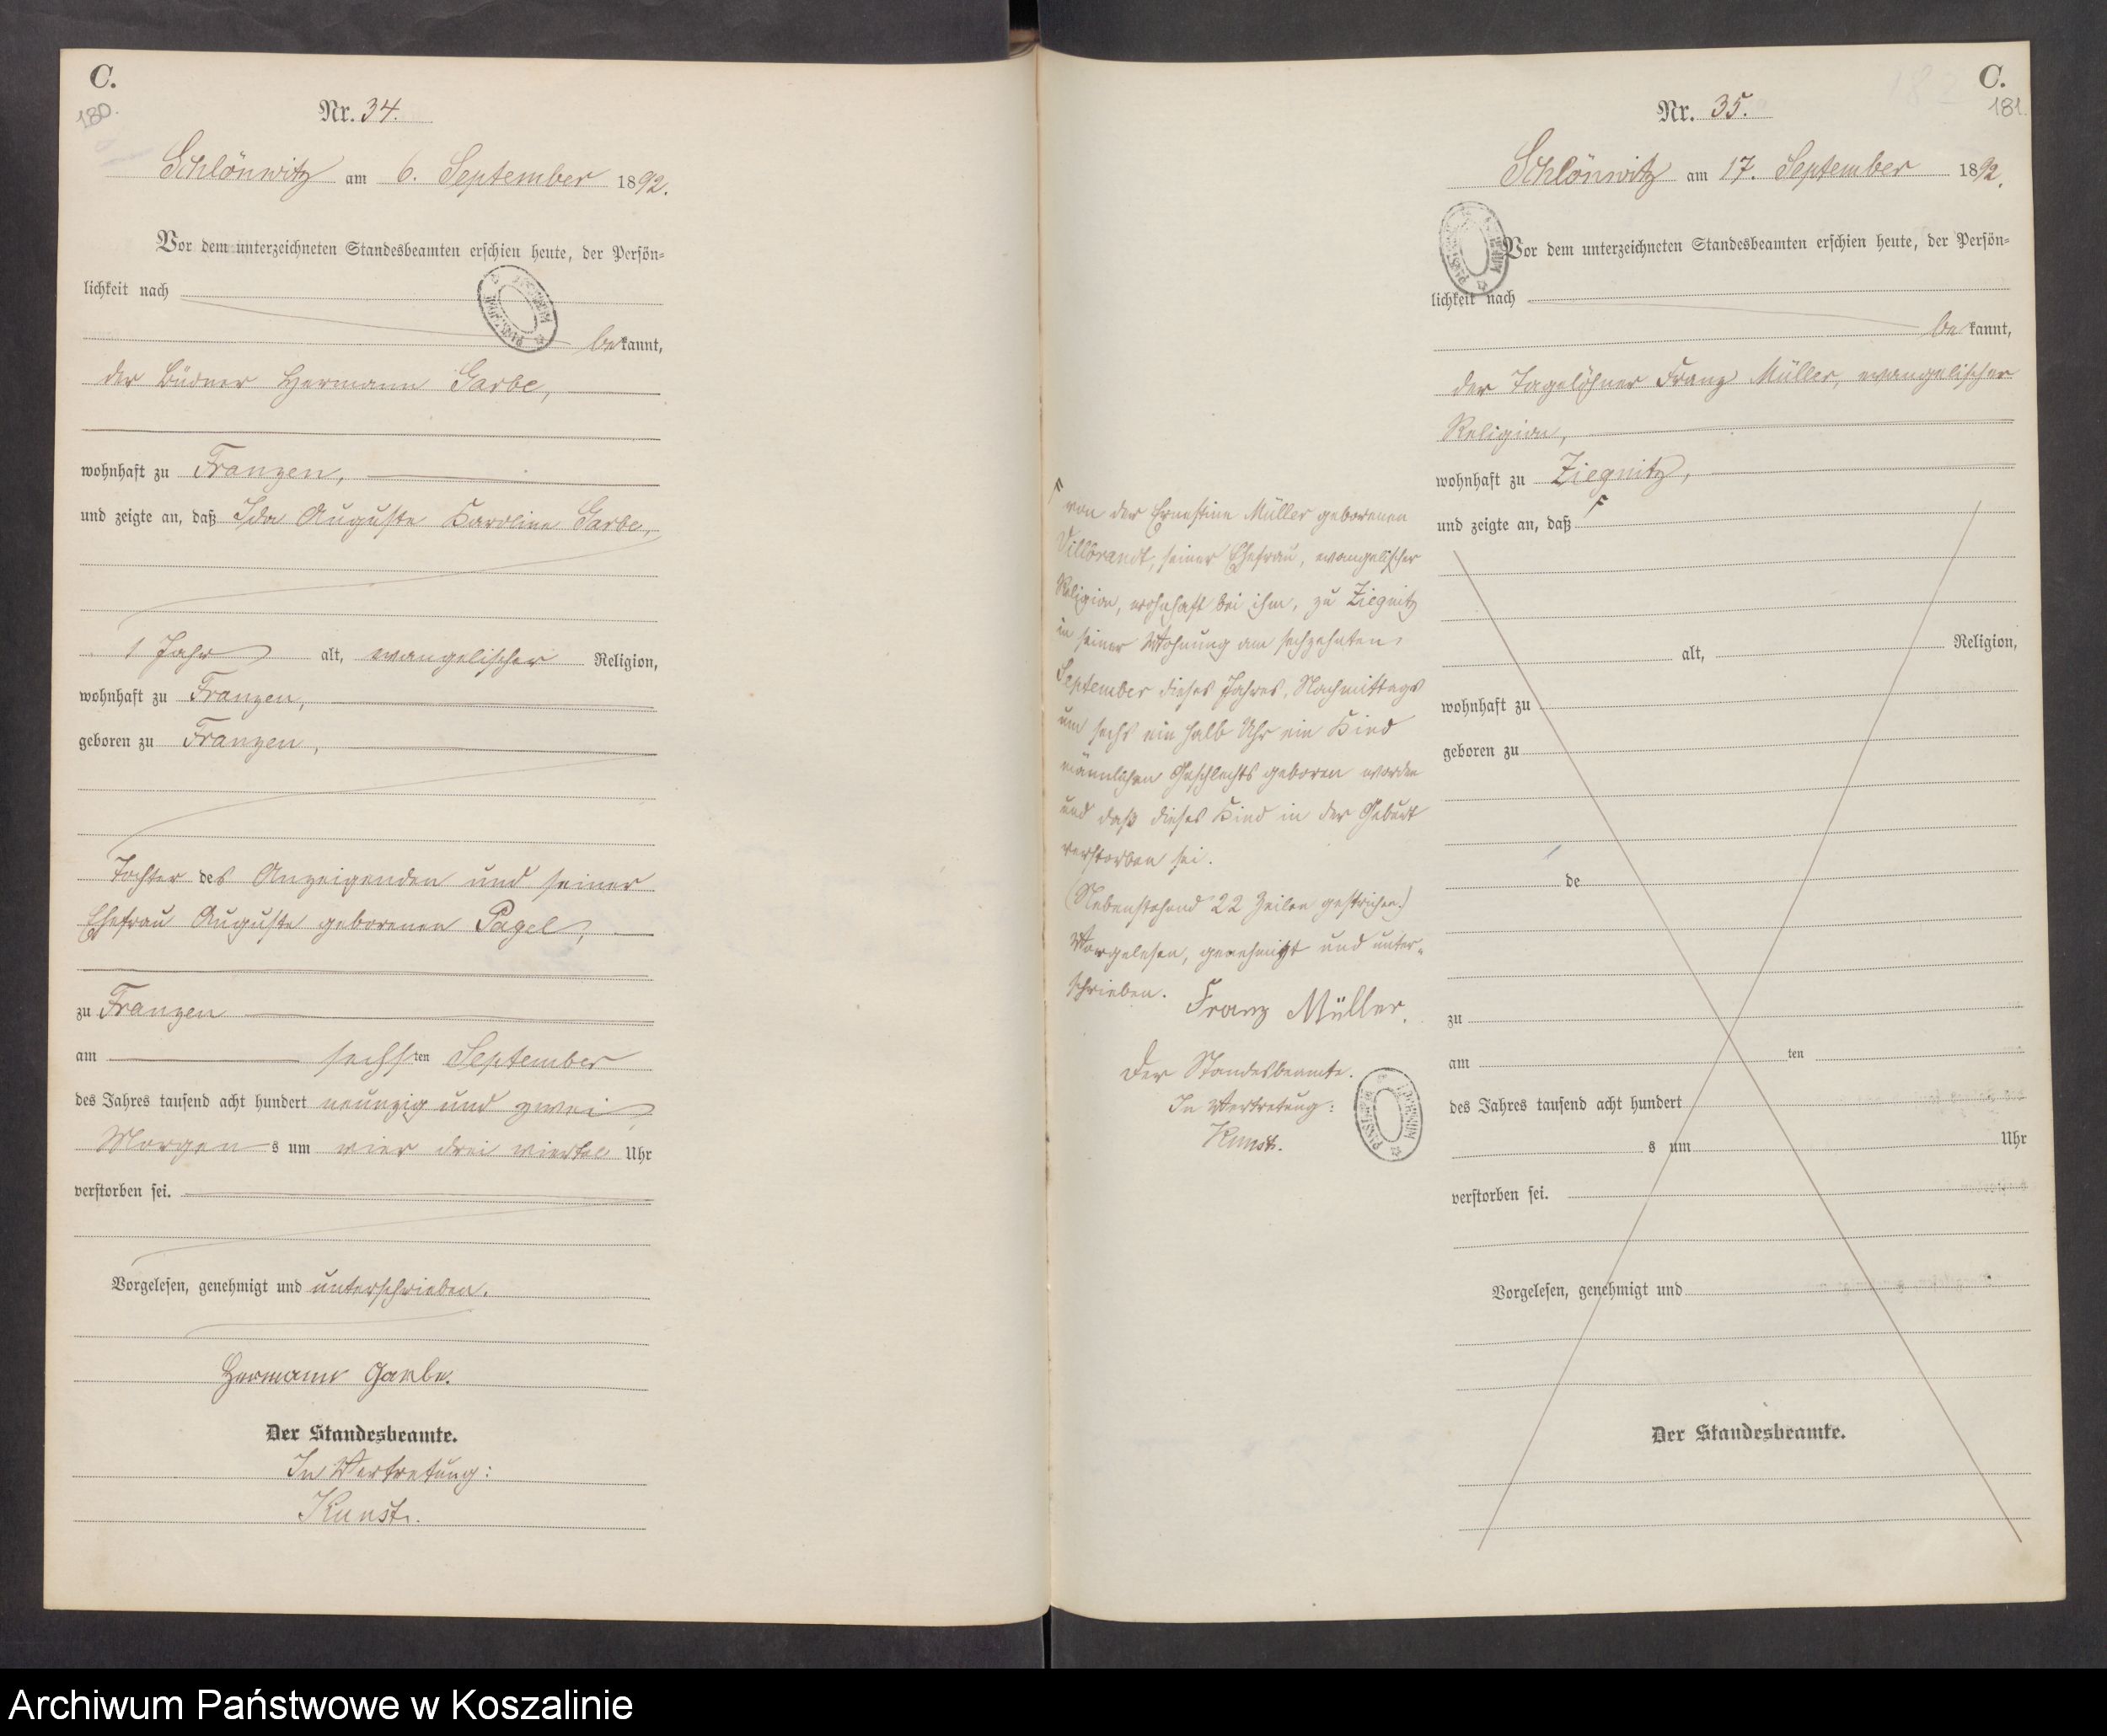 C.
180.
Nr. 34.
Schlönwitz am 6. September 1892.
Vor dem unterzeichneten Standesbeamten erschien heute, der Persön-
lichkeit nach
bekannt,
der Büdner Hermann Garbe,
wohnhaft zu Franzen,
und zeigte an, daß Ida Auguste Karoline Garbe,
1 Jahr alt, evangelischer Religion,
wohnhaft zu Franzen,
geboren zu Franzen,
Tochter des Anzeigenden und seiner
Ehefrau Auguste geborenen Pagel,
zu Franzen
am sechsten September
des Jahres tausend acht hundert neunzig und zwei,
Morgens um vier drei viertel Uhr
verstorben sei.
Vorgelesen, genehmigt und unterschrieben.
Hermann Garbe.
Der Standesbeamte.
In Vertretung:
Kunst.
C.
181.
Nr. 35.
Schlönwitz am 17. September 1892.
Vor dem unterzeichneten Standesbeamten erschien heute, der Persön-
lichkeit nach
bekannt,
der Tagelöhner Franz Müller, evangelischer
Religion,
wohnhaft zu Ziegnitz,
und zeigte an, daß
von der Ernestine Müller geborenen
Villbrandt, seiner Ehefrau, evangelischer
Religion, wohnhaft bei ihm, zu Ziegnitz
in seiner Wohnung am sechzehnten
September dieses Jahres, Nachmittags
um sechs ein halb Uhr ein Kind
männlichen Geschlechts geboren worden
und daß dieses Kind in der Geburt
verstorben sei.
(Nebenstehend 22 Zeilen gestrichen.)
Vorgelesen, genehmigt und unter-
schrieben.
Franz Müller.
Der Standesbeamte.
In Vertretung:
Kunst.
alt, Religion,
wohnhaft zu
geboren zu
de
zu
am ten
des Jahres tausend acht hundert
s um Uhr
verstorben sei.
Vorgelesen, genehmigt und
Der Standesbeamte.
Archiwum Państwowe w Koszalinie